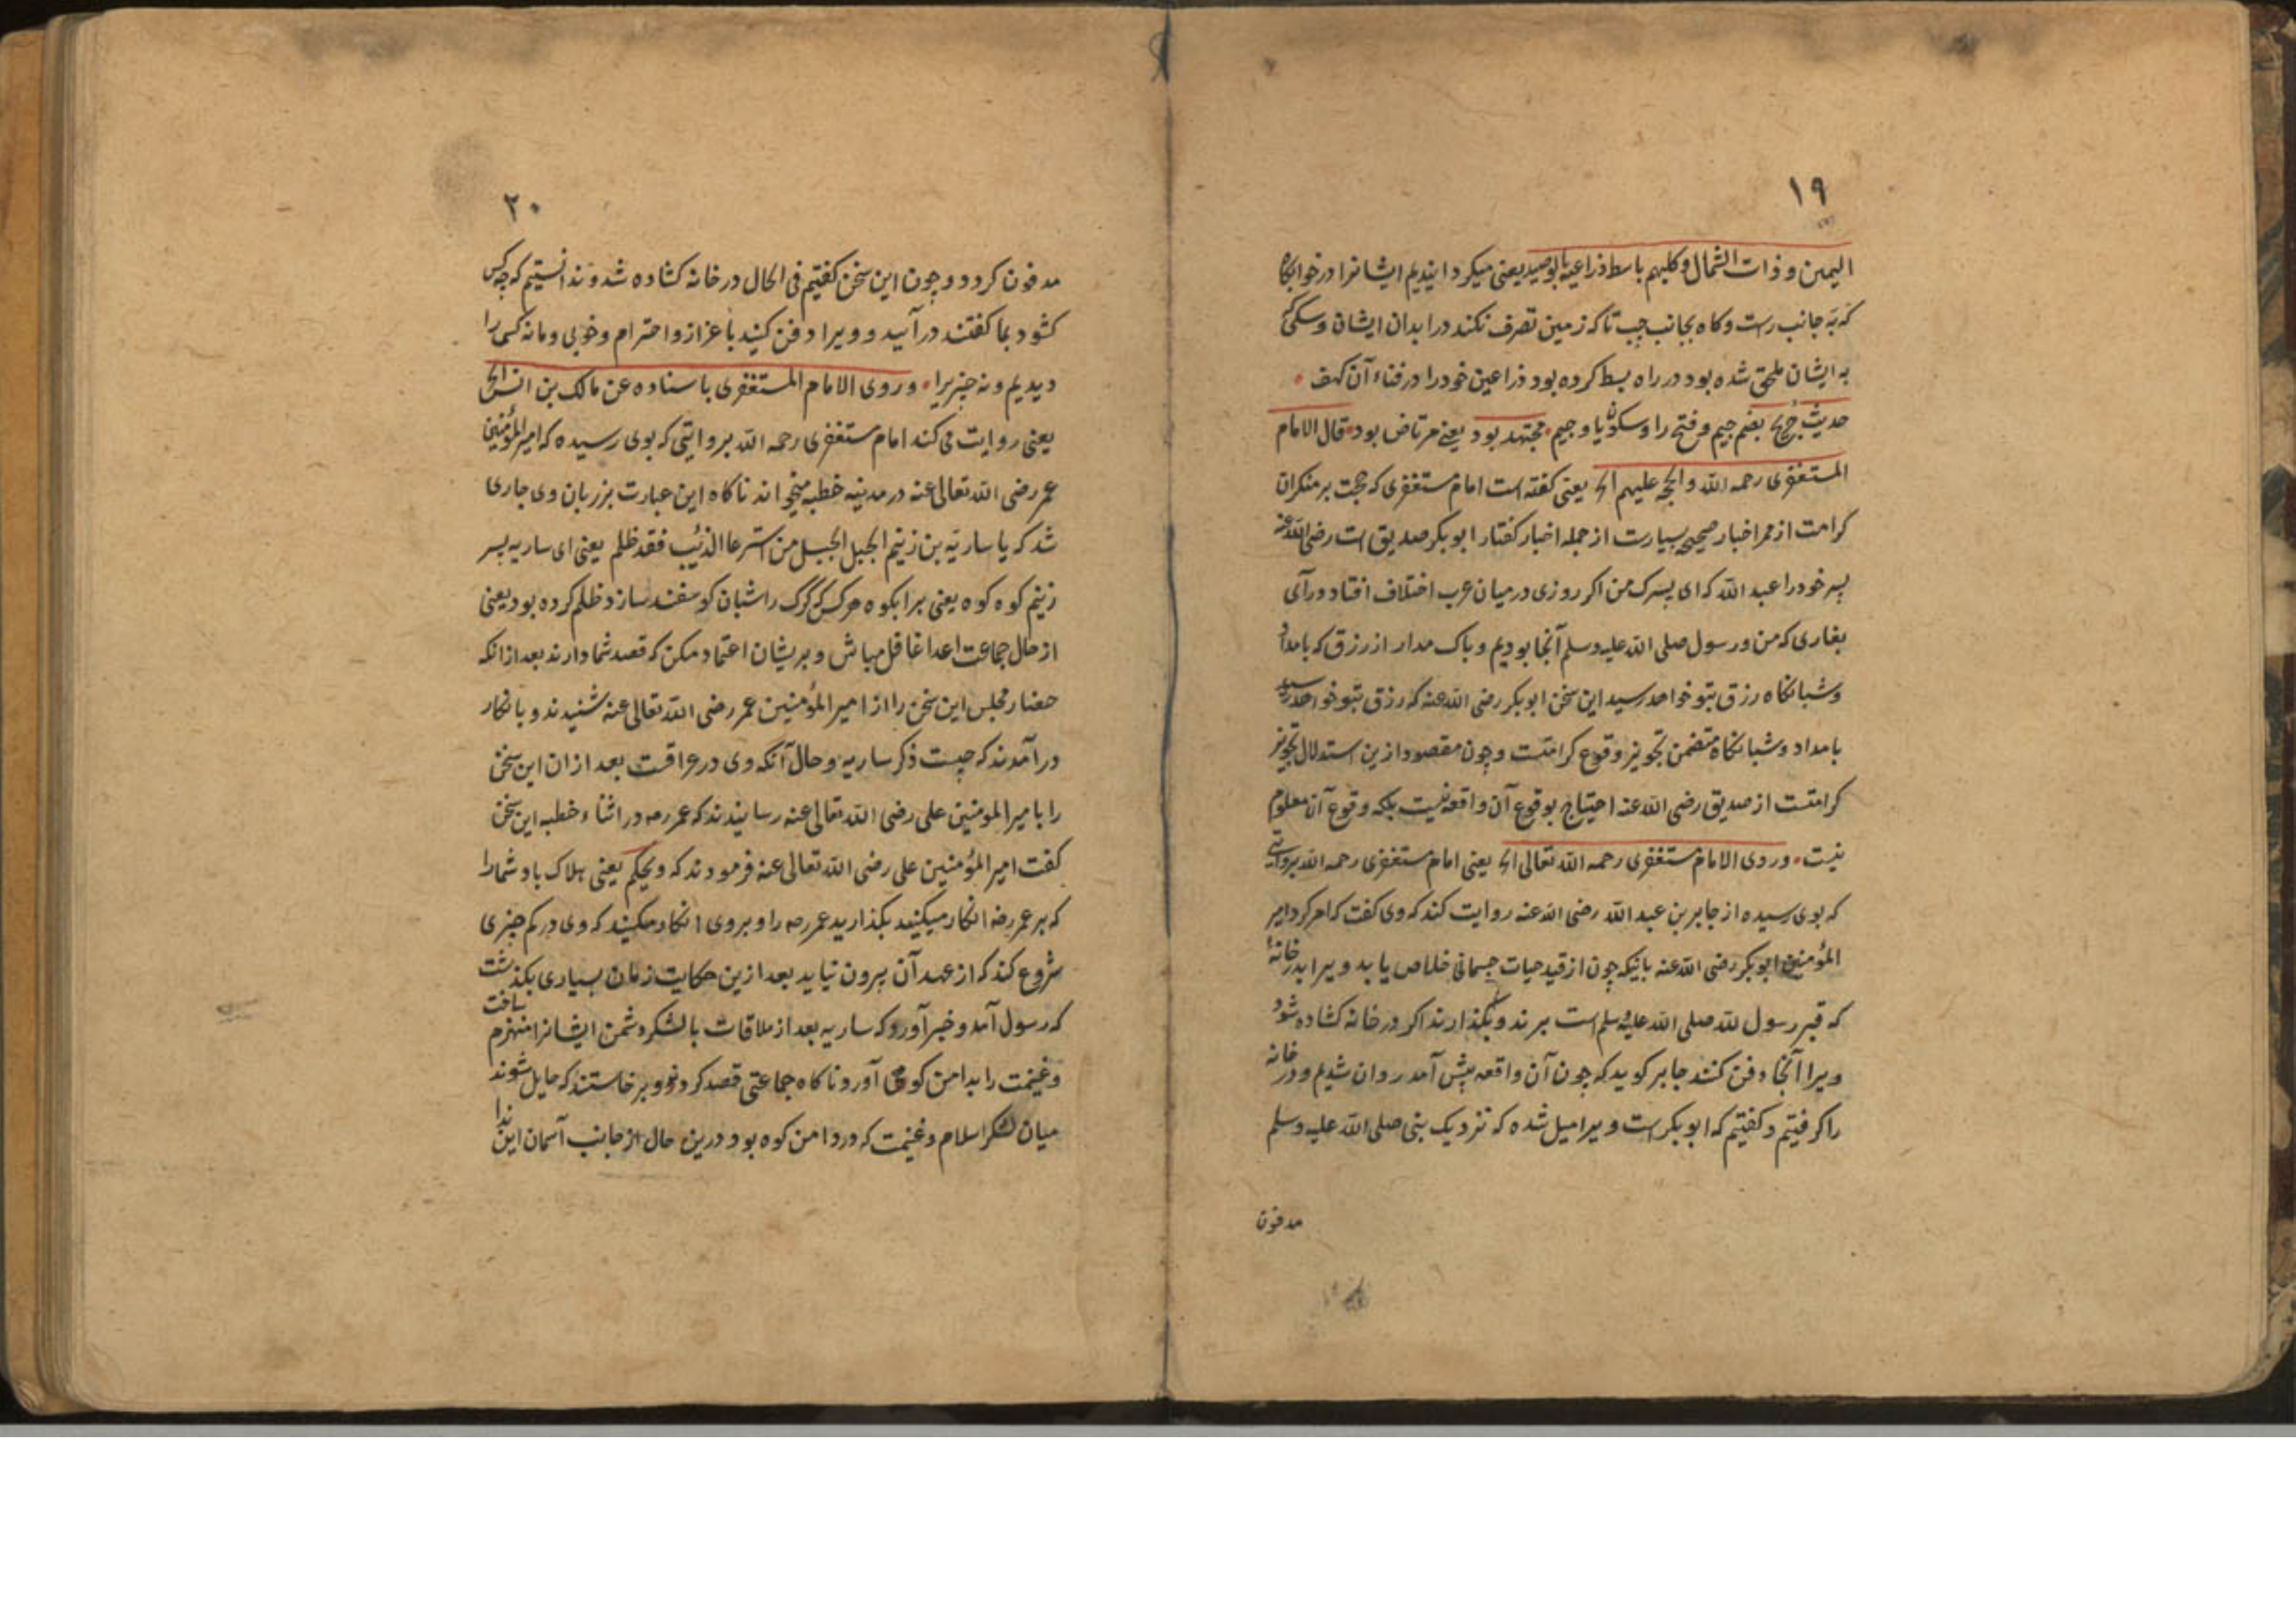 ١٩
الیمین و ذات الشمال وکلبهم باسط ذراعیه بالوصید یعنی میکردانیدیم ایشانرا در خوابکاه
که به جانب راست و کاه بجانب چپ تا که زمین تصرف نکند در ابدان ایشان و سکی که
به ایشان ملحق شده بود در راه بسط کرده بود ذراعین خود را در فناء آن کهف
حدیث جریج بضم جیم و فتح را و سکون یا و جیم مجتهد بود یعنی مرتاض بود قال الامام
المستغفری رحمه الله و الحجه علیهم الخ یعنی کفته است امام مستغفری که حجت بر منکران
کرامت از ممر اخبار صحیحه بسیارست از جمله اخبار کفتار ابو بکر صدیق است رضی الله عنه
پسر خود را عبد الله که ای پسرک من اکر روزی در میان عرب اختلاف افتاد در آی
بغاری که من و رسول صلی الله علیه وسلم آنجا بودیم و باک مدار از رزق که بامداد
و شبانکاه رزق بتو خواهد رسید این سخن ابو بکر رضی الله عنه که رزق بتو خواهد رسید
بامداد و شبانکاه متضمن تجویز وقوع کرامتست و چون مقصود ازین استدلال تجویز
کرامتست از صدیق رضی الله عنه احتیاج بوقوع آن واقعه نیست بلکه وقوع آن معلوم
نیست وروی الامام مستغفری رحمه الله تعالی الخ یعنی امام مستغفری رحمه الله بروایتی
که بوی رسیده از جابر بن عبد الله رضی الله عنه روایت کند که وی کفت که امر کرد امیر
المؤمنین ابو بکر رضی الله عنه باینکه چون از قید حیات جسمانی خلاص یابد ویرا بدر خانهٔ
که قبر رسول لله صلی الله علیه وسلم است برند و بکذارند اکر در خانه کشاده شود
ویرا آنجا دفن کنند جابر کوید که چون آن واقعه پیش آمد روان شدیم و در خانه
را کرفتیم و کفتیم که ابو بکر است ویرا میل شده که نزدیک بنی صلی الله علیه وسلم
مدفون
٢٠
مدفون کردد و چون این سخن کفتیم فی الحال در خانه کشاده شد و ندانستیم که چه کس
کشود بما کفتند در آیید و ویرا دفن کنید با عزاز و احترام و خوبی و مانه کسی را
دیدیم و نه چیزیرا وروی الامام المستغفری باسناده عن مالک بن انس الخ
یعنی روایت می کند امام مستغفری رحمه الله بروایتی که بوی رسیده که امیر المؤمنین
عمر رضی الله تعالی عنه در مدینه خطبه میخواند ناکاه این عبارت بر زبان وی جاری
شد که یا ساریة بن زنیم الجبل الجبل من استرعا الذئب فقد ظلم یعنی ای ساریه پسر
زنیم کوه کوه یعنی برا بکوه هر کس که کرک را شبان کوسفند سازد ظلم کرده بود یعنی
از حال جماعت اعدا غافل مباش و بریشان اعتماد مکن که قصد شما دارند بعد از انکه
حضار مجلس این سخن را از امیر المؤمنین عمر رضی الله تعالی عنه شنیدند و بانکار
در آمدند که چیست ذکر ساریه و حال آنکه وی در عراقست بعد ازان این سخن
را بامیر المومنین علی رضی الله تعالی عنه رسانیدند که عمر رضه در اثناء خطبه این سخن
کفت امیر المؤمنین علی رضی الله تعالی عنه فرمودند که ویحکم یعنی هلاک باد شما را
که بر عمر رضه انکار میکنید بکذارید عمر رضه را و بروی انکار مکنید که وی در کم چیزی
شروع کند که از عهد آن بیرون نیاید بعد ازین حکایت زمان بسیاری بکذشت
که رسول آمد و خبر آورد که ساریه بعد از ملاقات با لشکر دشمن ایشانرا منهزم ساخت
و غنیمت را بدامن کوه آورد ناکاه جماعتی قصد کردند و برخاستند که حایل شوند
میان لشکر اسلام و غنیمت که در دامن کوه بود درین حال از جانب آسمان این ندا